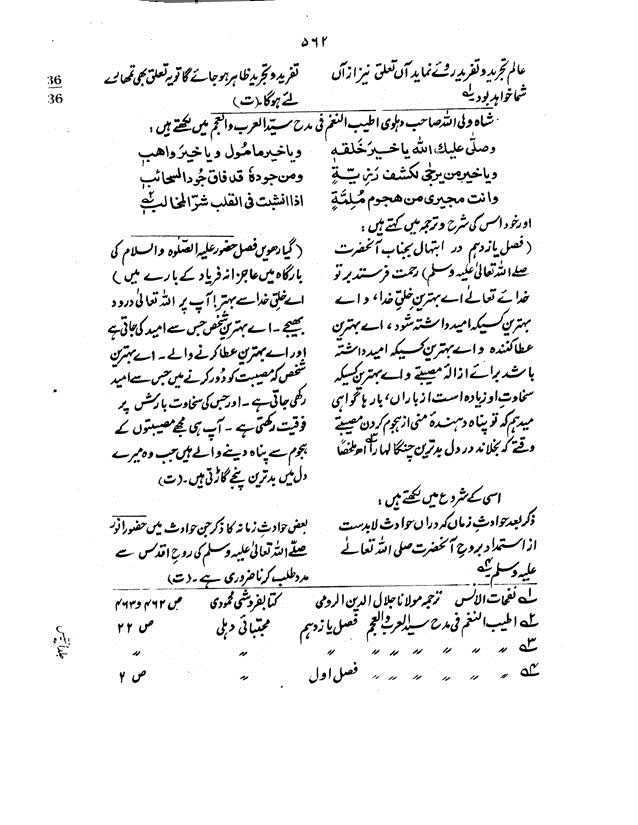 ۵۶۲
36
36
عالم تجرید و تفرید روئے نماید آں تعلق نیز ازاں
شما خواہد بود۔
تفرید و تجرید ظاہر ہو جائے گا تو یہ تعلق بھی تمھارے
لئے ہوگا۔ (ت)
شاہ ولی اللہ صاحب دہلوی اطیب النغم فی مدح سید العرب والعجم میں لکھتے ہیں :
وصلی علیك اللہ یا خیر خلقہ ویا خیر مامول ویا خیر واھب
ویا خیر من یرجی لکشف رزیۃ ومن جودہ قد فاق جود السحائب
وانت مجیری من ھجوم ملمۃ اذا انشبت فی القلب شر المخالب
اور خود اس کی شرح و ترجمہ میں کہتے ہیں :
(فصل یازدہم در ابتہال بجناب آنحضرت
صلی اللہ تعالٰی علیہ وسلم) رحمت فرستد بر تو
خدائے تعالٰی اے بہترین خلق خدا، و اے
بہترین کسیکہ امید داشتہ شود، اے بہترین
عطا کنندہ و اے بہترین کسیکہ امید داشتہ
باشد برائے ازالۂ مصیبتے و اے بہترین کسیکہ
سخاوت او زیادہ است از باراں، بارہا گواہی
میدہم کہ تو پناہ دہندۂ منی از ہجوم کردن مصیبتے
وقتے کہ بخلاند در دل بدترین چنگالہا را اھ ملخصا
(گیارھویں فصل حضور علیہ الصلوٰۃ والسلام کی
بارگاہ میں عاجزانہ فریاد کے بارے میں)
اے خلق خدا سے بہتر! آپ پر اللہ تعالٰی درود
بھیجے۔ اے بہترین شخص جس سے امید کی جاتی ہے
اور اے بہترین عطا کرنے والے۔ اے بہترین
شخص کہ مصیبت کو دُور کرنے میں جس سے امید
رکھی جاتی ہے۔ اور جس کی سخاوت بارش پر
فوقیت رکھتی ہے۔ آپ ہی مجھے مصیبتوں کے
ہجوم سے پناہ دینے والے ہیں جب وہ میرے
دل میں بدترین پنجے گاڑتی ہیں۔ (ت)
اسی کے شروع میں لکھتے ہیں :
ذکر بعد حوادث زماں کہ دراں حوادث لابدست
از استمداد بروح آنحضرت صلی اللہ تعالٰی
علیہ وسلم
بعض حوادثِ زمانہ کا ذکر جن حوادث میں حضور انور
صلی اللہ تعالٰی علیہ وسلم کی روحِ اقدس سے
مدد طلب کرنا ضروری ہے۔ (ت)
۱ نفحات الانس ترجمہ مولانا جلال الدین الرومی کتابفروشی محمودی ص ۴۶۲ و ۴۶۳
۲ اطیب النغم فی مدح سید العرب والعجم فصل یازدہم مجتبائی دہلی ص ۲۲
۳ ” ” ” ” ” ” ” ”
۴ ” ” ” ” ” فصل اول ” ص ۲